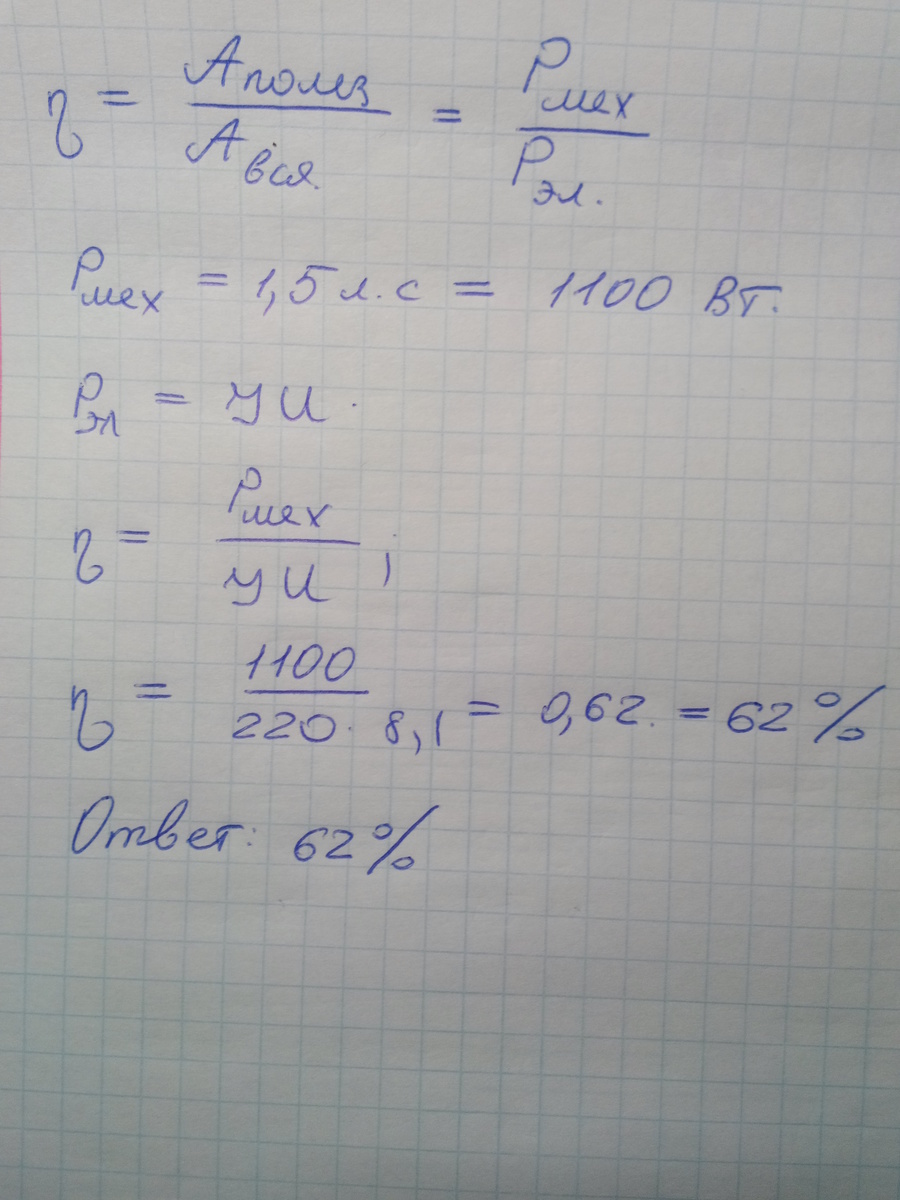 η = Aполез / Aвся. = Pмех / Pэл.
Pмех = 1,5 л.с = 1100 Вт.
Pэл = УИ.
η = Pмех / УИ ;
η = 1100 / 220 · 8,1 = 0,62. = 62%
Ответ: 62%